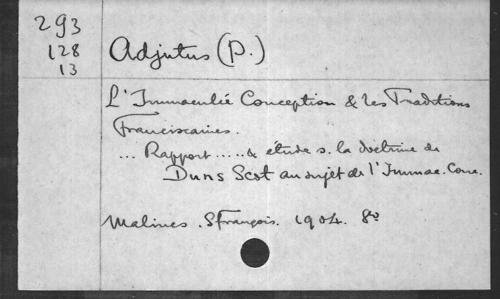 293
128
13
Adjutus (P.)
L'Immaculée Conception & les Traditions
Franciscaines.
... Rapport ..... & étude s. la doctrine de
Duns Scot au sujet de l'Immac. Conc.
Malines. S François. 1904. 8º